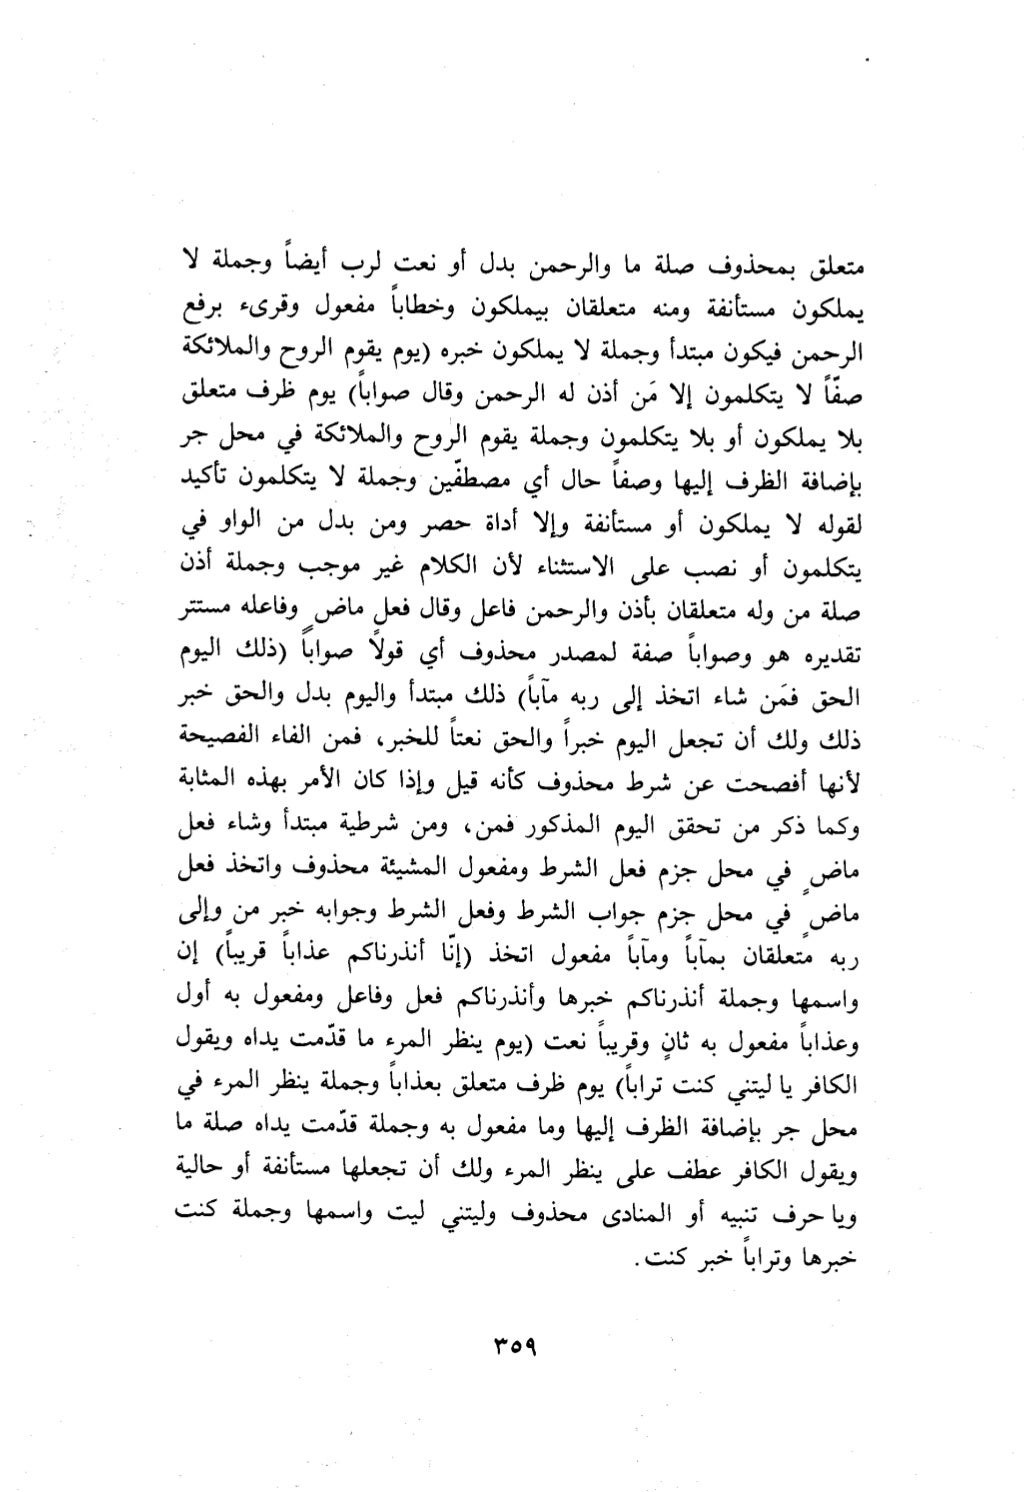 متعلق بمحذوف صلة ما والرحمن بدل أو نعت لرب أيضاً وجملة لا
يملكون مستأنفة ومنه متعلقان بيملكون وخطاباً مفعول وقرىء برفع
الرحمن فيكون مبتدأ وجملة لا يملكون خبره (يوم يقوم الروح والملائكة
صفّاً لا يتكلمون إلا مَن أذن له الرحمن وقال صواباً) يوم ظرف متعلق
بلا يملكون أو بلا يتكلمون وجملة يقوم الروح والملائكة في محل جر
بإضافة الظرف إليها وصفاً حال أي مصطفّين وجملة لا يتكلمون تأكيد
لقوله لا يملكون أو مستأنفة وإلا أداة حصر ومن بدل من الواو في
يتكلمون أو نصب على الاستثناء لأن الكلام غير موجب وجملة أذن
صلة من وله متعلقان بأذن والرحمن فاعل وقال فعل ماضٍ وفاعله مستتر
تقديره هو وصواباً صفة لمصدر محذوف أي قولًا صواباً (ذلك اليوم
الحق فمَن شاء اتخذ إلى ربه مآباً) ذلك مبتدأ واليوم بدل والحق خبر
ذلك ولك أن تجعل اليوم خبراً والحق نعتاً للخبر، فمن الفاء الفصيحة
لأنها أفصحت عن شرط محذوف كأنه قيل وإذا كان الأمر بهذه المثابة
وكما ذكر من تحقق اليوم المذكور فمن، ومن شرطية مبتدأ وشاء فعل
ماضٍ في محل جزم فعل الشرط ومفعول المشيئة محذوف واتخذ فعل
ماضٍ في محل جزم جواب الشرط وفعل الشرط وجوابه خبر من وإلى
ربه متعلقان بمآباً ومآباً مفعول اتخذ (إنّا أنذرناكم عذاباً قريباً) إن
واسمها وجملة أنذرناكم خبرها وأنذرناكم فعل وفاعل ومفعول به أول
وعذاباً مفعول به ثانٍ وقريباً نعت (يوم ينظر المرء ما قدّمت يداه ويقول
الكافر يا ليتني كنت تراباً) يوم ظرف متعلق بعذاباً وجملة ينظر المرء في
محل جر بإضافة الظرف إليها وما مفعول به وجملة قدّمت يداه صلة ما
ويقول الكافر عطف على ينظر المرء ولك أن تجعلها مستأنفة أو حالية
ويا حرف تنبيه أو المنادى محذوف وليتني ليت واسمها وجملة كنت
خبرها وتراباً خبر كنت.
٣٥٩